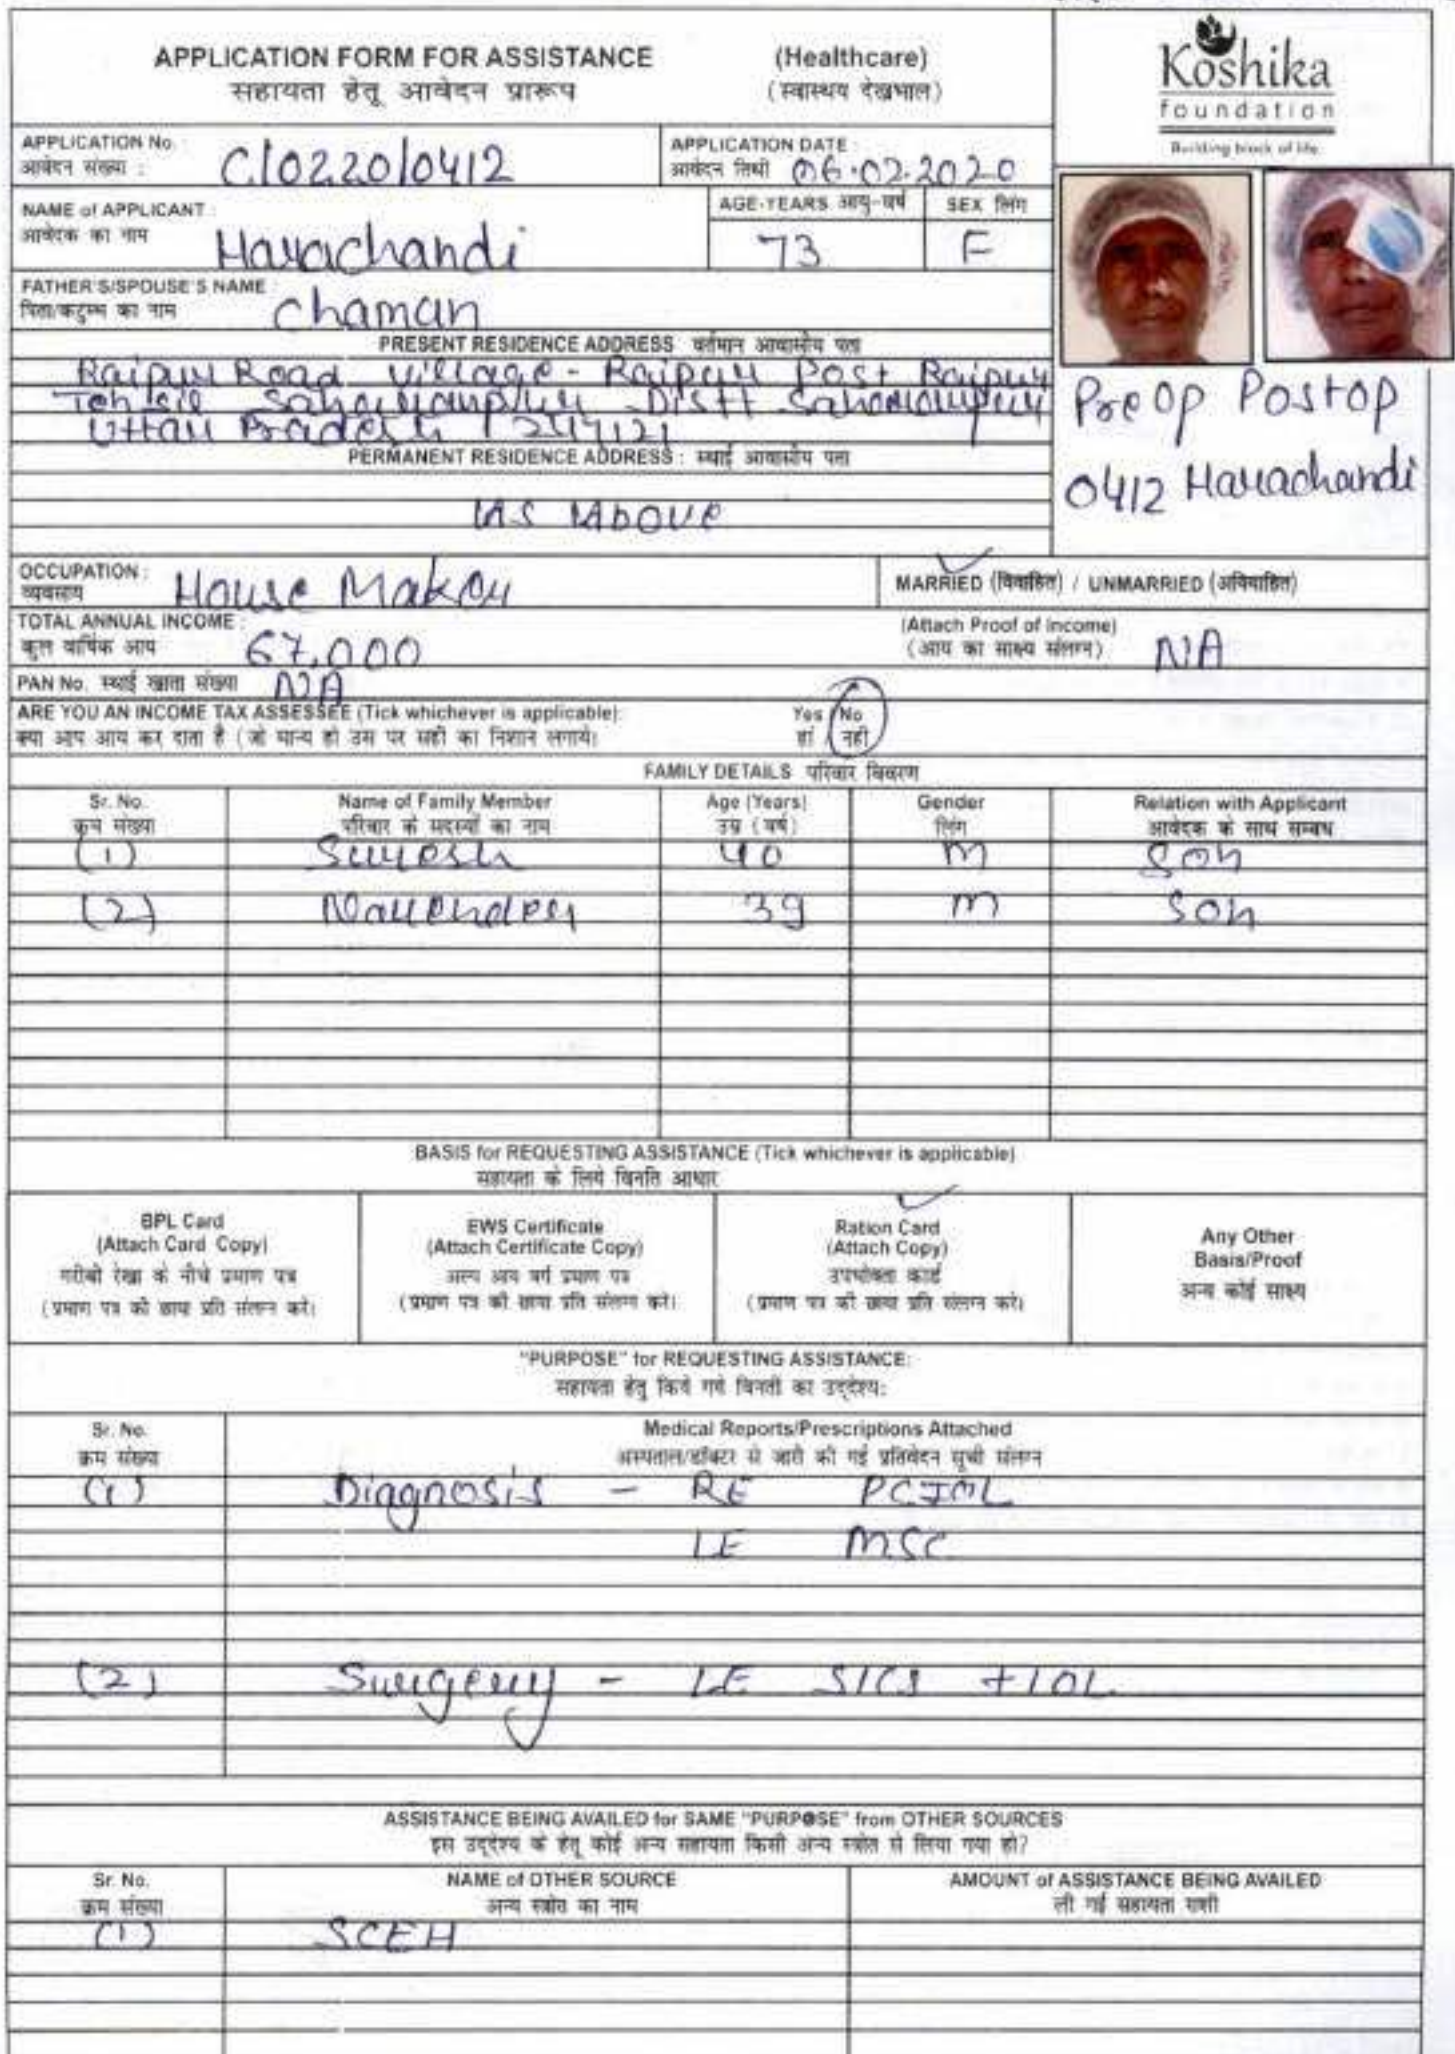 APPLICATION FORM FOR ASSISTANCE (Healthcare)
सहायता हेतू आवेदन प्रारूप (स्वास्थय देखभाल)
Koshika
foundation
Building block of life
APPLICATION No :
आवेदन संख्या :
C/0220/0412
APPLICATION DATE :
आवेदन तिथी 06.02.2020
NAME of APPLICANT :
आवेदक का नाम
Harachandi
AGE-YEARS आयु-वर्ष
73
SEX लिंग
F
FATHER'S/SPOUSE'S NAME :
पिता/कटुम्ब का नाम
Chaman
PRESENT RESIDENCE ADDRESS वर्तमान आवासीय पता
Raipur Road Village - Raipur Post Raipur
Tehsil Saharanpur Distt Saharanpur
Uttar Pradesh 247121
PERMANENT RESIDENCE ADDRESS : स्थाई आवासीय पता
As Above
PreOp PostOp
0412 Harachandi
OCCUPATION :
व्यवसाय
House Maker
MARRIED (विवाहित) / UNMARRIED (अविवाहित)
TOTAL ANNUAL INCOME :
कुल वार्षिक आय
67,000
(Attach Proof of Income)
(आय का साक्ष्य संलग्न)
NA
PAN No. स्थाई खाता संख्या NA
ARE YOU AN INCOME TAX ASSESSEE (Tick whichever is applicable): Yes / No
क्या आप आय कर दाता है (जो मान्य हो उस पर सही का निशान लगाये) हां / नहीं
FAMILY DETAILS परिवार विवरण
Sr. No. Name of Family Member Age (Years) Gender Relation with Applicant
क्रम संख्या परिवार के सदस्यों का नाम उम्र (वर्ष) लिंग आवेदक के साथ सम्बध
(1) Suresh 40 M Son
(2) Narender 39 M Son
BASIS for REQUESTING ASSISTANCE (Tick whichever is applicable)
सहायता के लिये विनति आधार
BPL Card
(Attach Card Copy)
गरीबी रेखा के नीचे प्रमाण पत्र
(प्रमाण पत्र की छाया प्रति संलग्न करे)
EWS Certificate
(Attach Certificate Copy)
अल्प आय वर्ग प्रमाण पत्र
(प्रमाण पत्र की छाया प्रति संलग्न करे)
Ration Card
(Attach Copy)
उपभोक्ता कार्ड
(प्रमाण पत्र की छाया प्रति संलग्न करे)
Any Other
Basis/Proof
अन्य कोई साक्ष्य
"PURPOSE" for REQUESTING ASSISTANCE:
सहायता हेतु किये गये विनती का उद्देश्य:
Sr. No. Medical Reports/Prescriptions Attached
क्रम संख्या अस्पताल/डॉक्टर से जारी की गई प्रतिवेदन सूची संलग्न
(1) Diagnosis - RE PCIOL
LE MSC
(2) Surgery - LE SICS + IOL
ASSISTANCE BEING AVAILED for SAME "PURPOSE" from OTHER SOURCES
इस उद्देश्य के हेतू कोई अन्य सहायता किसी अन्य स्त्रोत से लिया गया हो?
Sr. No. NAME of OTHER SOURCE AMOUNT of ASSISTANCE BEING AVAILED
क्रम संख्या अन्य स्त्रोत का नाम ली गई सहायता राशी
(1) SCEH